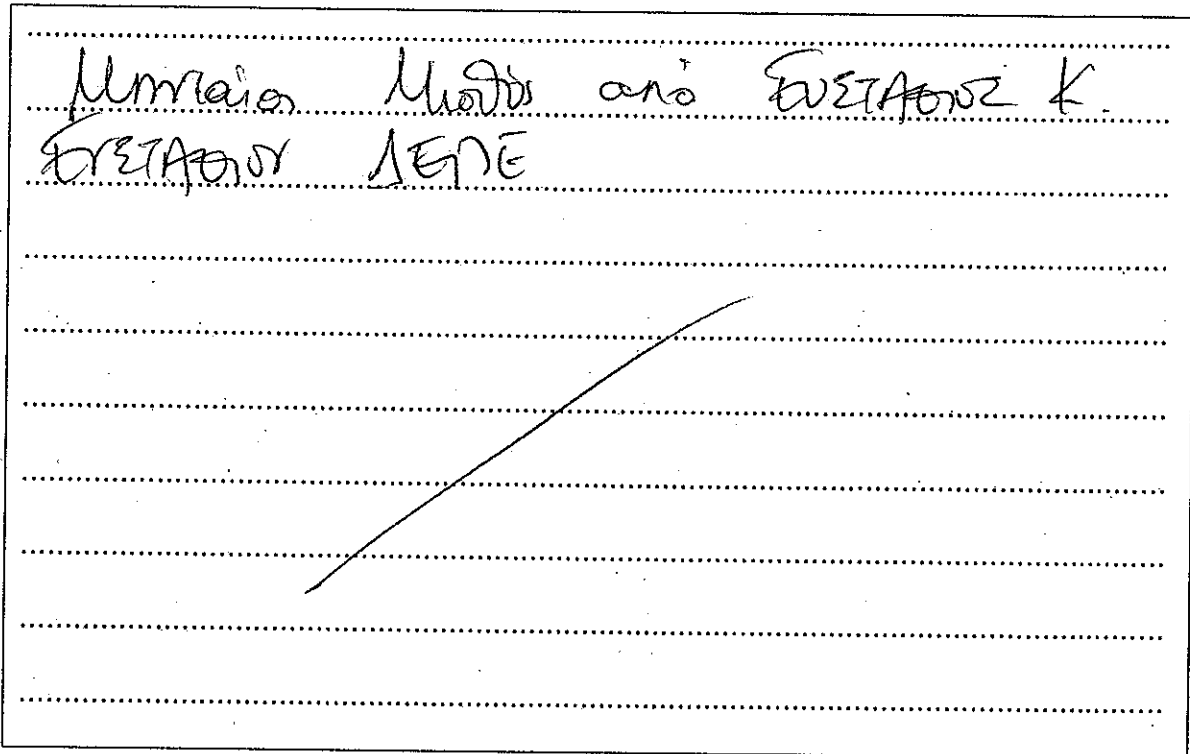 Μηνιαίος Μισθός από ΕΥΣΤΑΘΙΟΣ Κ.
ΕΥΣΤΑΘΙΟΥ ΔΕΠΕ